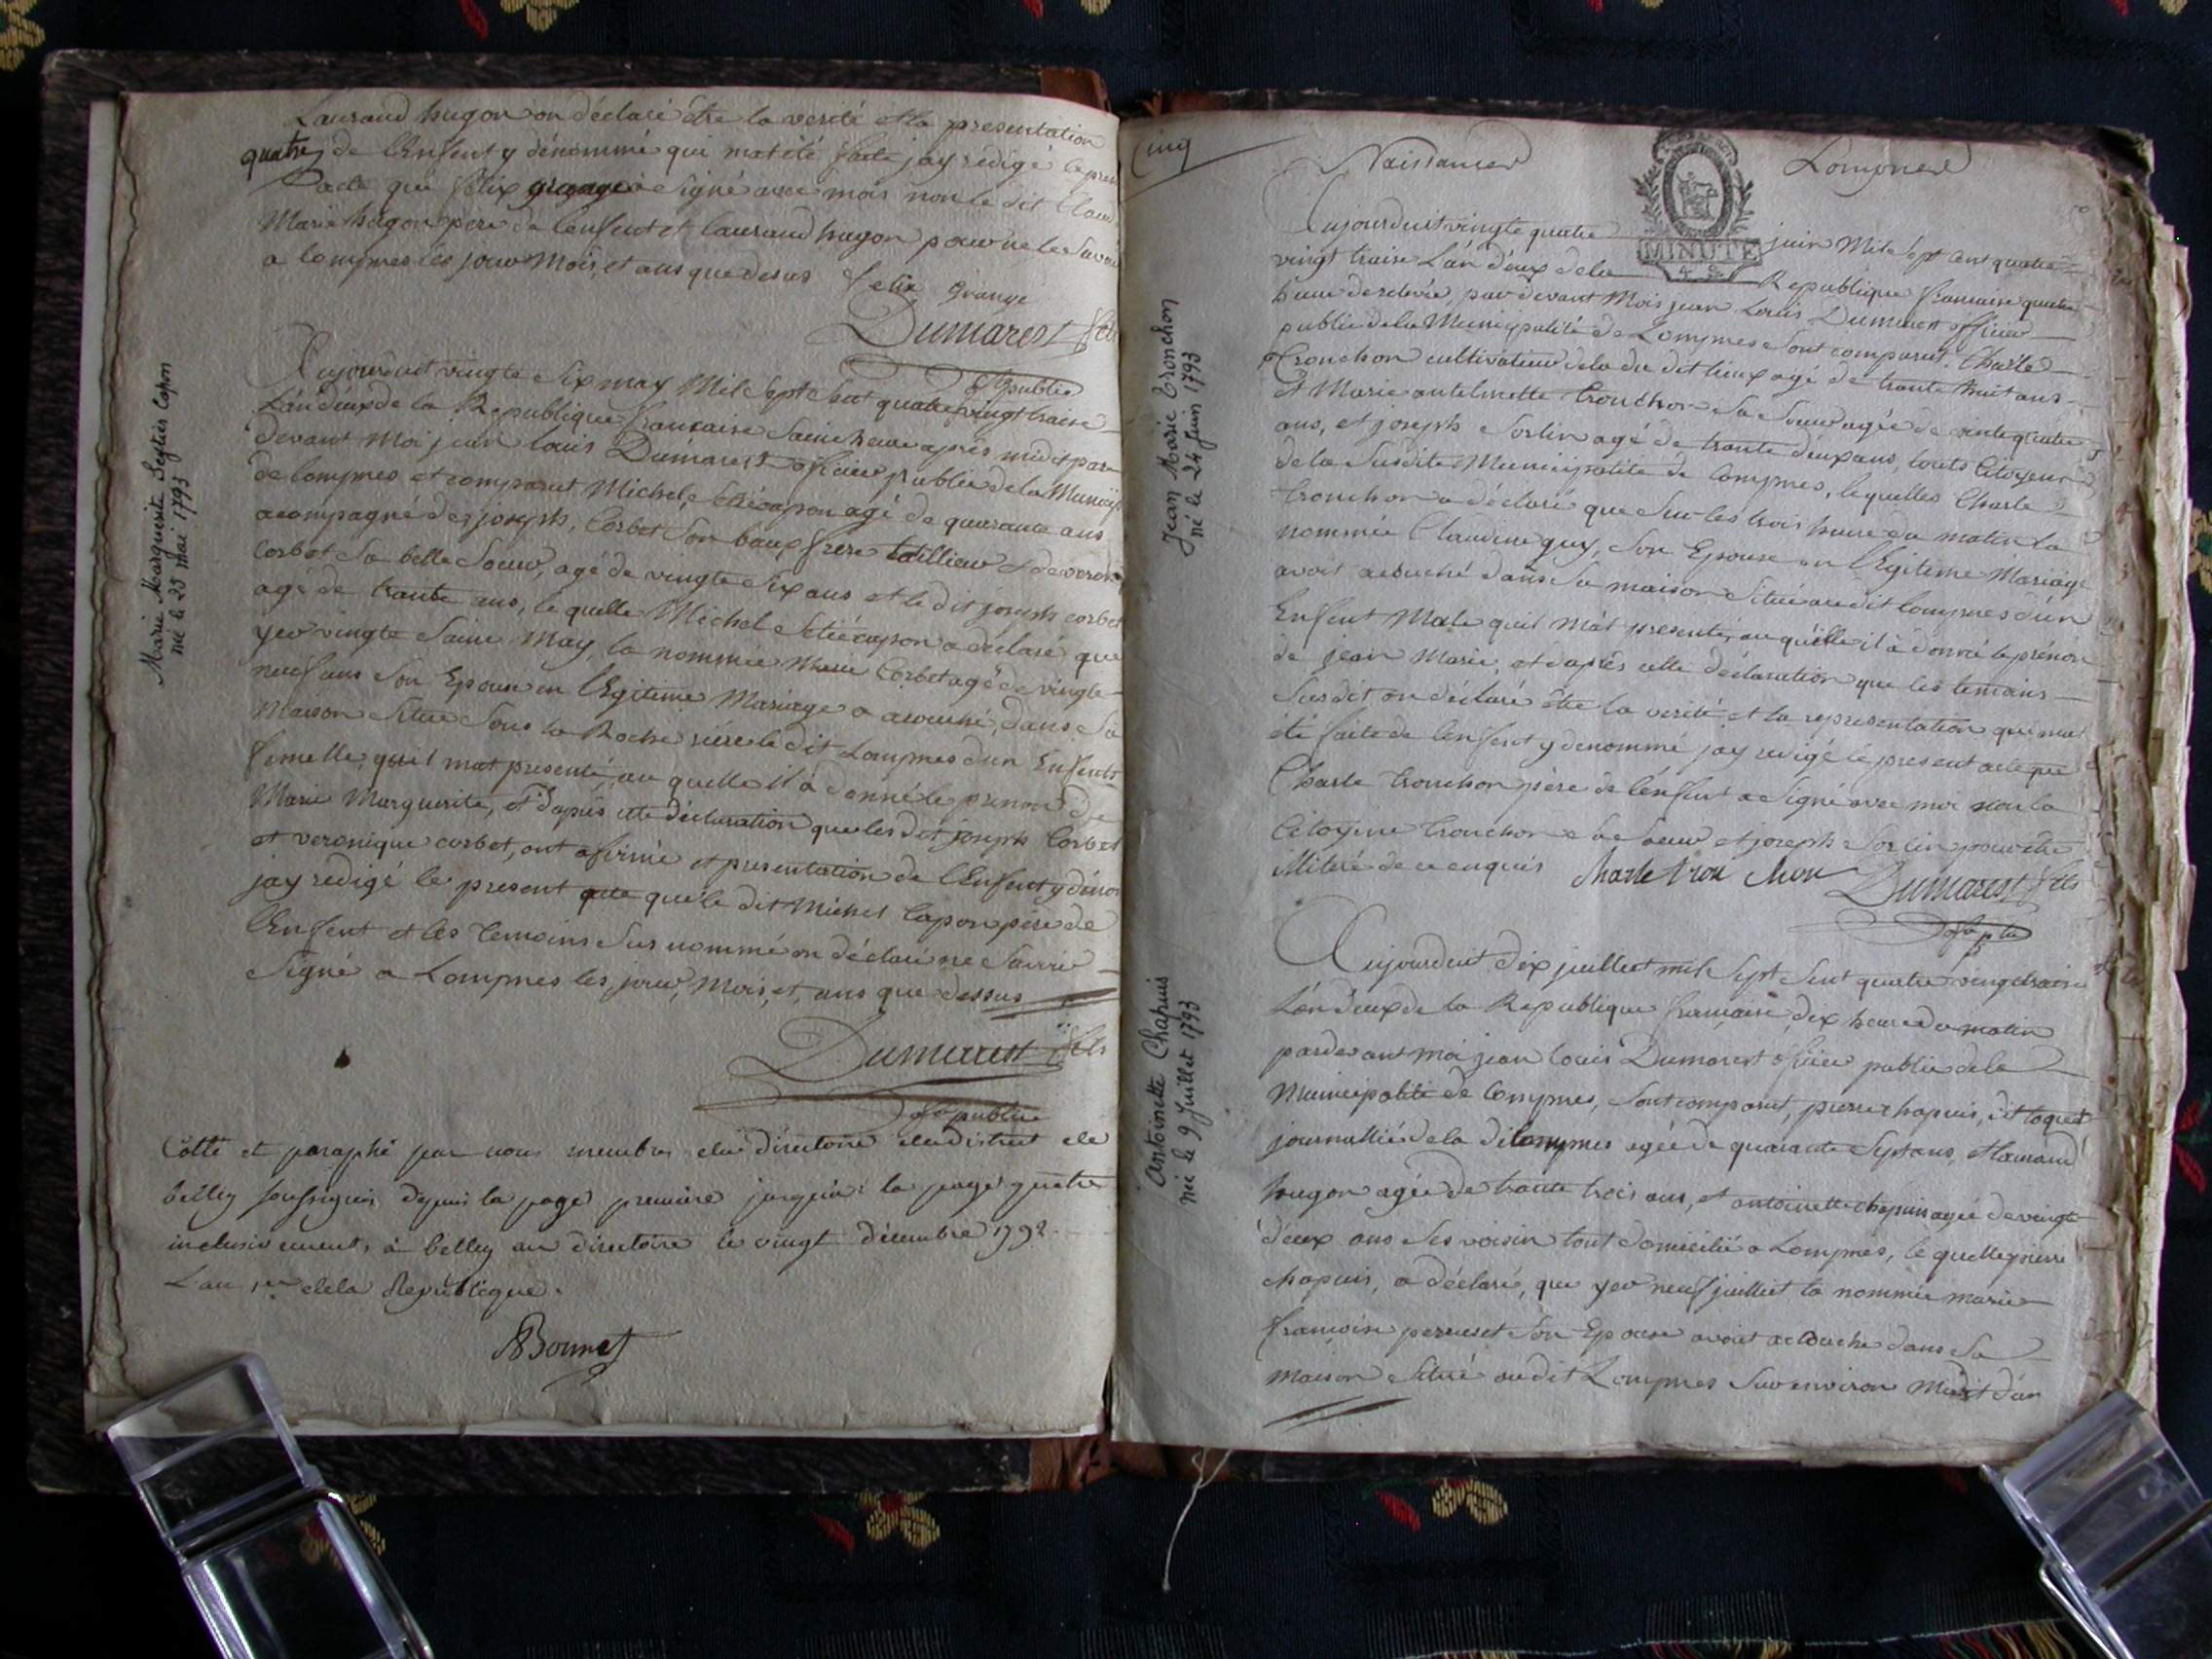 Lauraud hugon on déclaré être la verité et la presentation
quatre de l'Enfent y dénommé qui mat été faite jay redigé le pres
acte que felix grange a signé avec mois non le dit Claud
Marie hugon pere de l'enfent et lauraud hugon pour ne le savoi
a lompnes les jour Mois et ans que desus felix Grange
Dumarest fils
of publie
Marie Marguerite Seytiés Capon
né le 25 mai 1793
Aujourduit vingte six may Mil sept sent quatre vingt traise
L'an déux de la Republique francaise saint heure après midit par
devant Moi jean louis Dumarest officier public de la Municip
de lompnes et comparut Michel capon agé de quarante ans
acompagné de joseph Corbet son baux frere tailleur
Corbet sa belle soeur, agé de vingte six ans et le dit joseph corbet
agé de trante ans, le quelle Michel capon a déclaré que
yer vingte saint May, la nommée Marie Corbet agé de vingte
neuf ans son Epouse en lEgitime Mariage a acouché, dans sa
Maison située sous la Roche riere le dit Lompnes d'un Enfent
femelle, quil mat presenté, au quelle il à donné le prenon de
Marie Marguerite, et d'après cette déclaration que les dit joseph Corbet
et veronique corbet, ont afirmé et presentation de l'Enfent y dénon
jay redigé le present acte que le dit Michel Capon père de
l'Enfent et les temoins sus nommé on déclaré ne savoir
signé a Lompnes les jour, Mois, et, ans que dessus
Dumarest fils
of publie
Cotté et paraphé par nous membre du directoire du district de
belley soussigné, depuis la page premiere jusqu'a la page quatre
inclusivement, à belley au directoire le vingt décembre 1792
L'an 1er de la République.
Bonnet
Cinq
Naissances Lompnes
MINUTE
4 S.
Jean Marie Tronchon
né le 24 juin 1793
Aujourduit vingte quatre juin Mile sept sent quatre
vingt traise L'an d'eux de la Republique francaise quatre
heure de relevée, par devant Mois jean Louis Dumarest officier
public de la Municipalité de Lompnes sont comparut Charle
Tronchon cultivateur de la du dit lieux agé de trante huit ans
et Marie antelmette tronchon sa soeur agée de vinte quatre
ans, et joseph Sorlin agé de trante déux ans, touts Citoyens
de la susdite Municipalité de lompnes, lequelles Charle
tronchon a déclaré que sur les trois heure du matin la
nommée Claudine guy, son Epouse en lEgiteme Mariage
avoit acouché dans sa maison située au dit lompnes d'un
Enfent Male quil mat presenté, au quelle il à donné le prénon
de jean Marie, et daprès cette déclaration que les temoins
susdit on déclaré être la verité et la representation qui mat
été faite de l'enfent y denommé jay redigé le present acte que
Charle tronchon père de l'énfent a signé avec moi non la
Citoyene tronchon sa soeur et joseph Sorlin pour être
illiteré de ce enquis Charle tron chon Dumarest fils
of plic
Antoinette Chapuis
née le 9 Juillet 1793
Aujourduit dix juillet mil sept sent quatre vingt traise
L'an d'eux de la Republique francaise dix heure du matin
pardevant moi jean louis Dumarest oficier public de la
Municipalité de lompnes, sont comparut, pierre chapuis, dit toquet
journallié de la di lompnes agée de quarante sept ans, et lauraud
hugon agée de trante trois ans, et antoinette chapuis agée de vingt
déux ans ses voisin tout domicilié a Lompnes, le quelle pierre
chapuis, a déclaré, que yer neuf juillet la nommée marie
francoise perruset son Epouse avoit acouche dans sa
maison situé au dit Lompnes sur environ Midit d'un